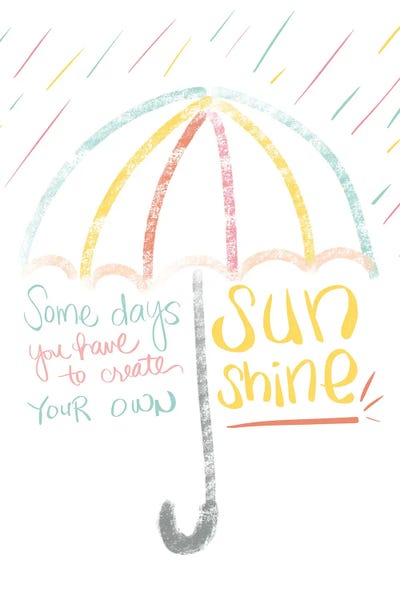 Some days
you have
to create
YOUR OWN
sun
shine